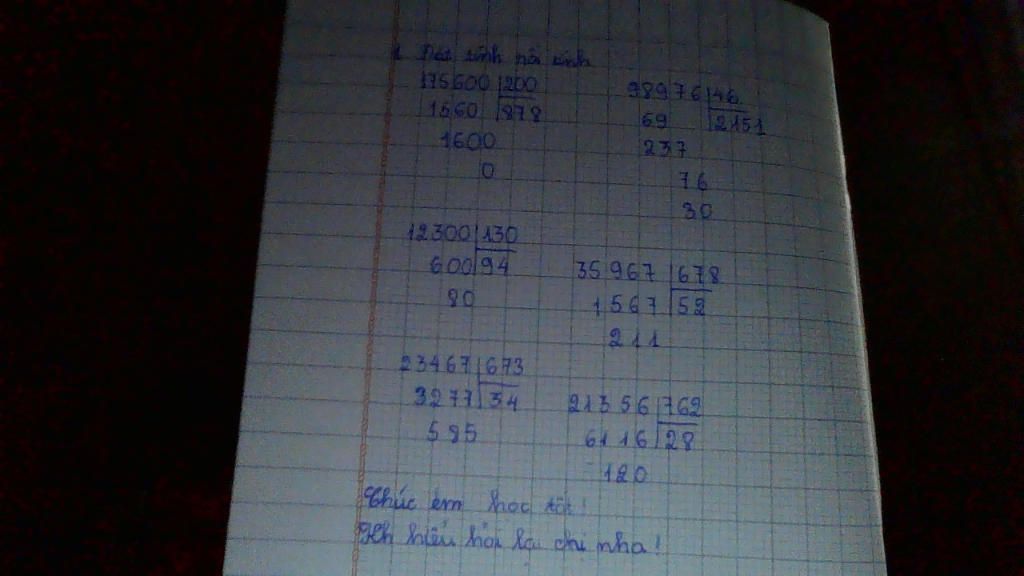 1. Đặt tính rồi tính
175600 200
1560 878
1600
0
98976 46
69 2151
237
76
30
12300 130
600 94
80
35967 678
1567 52
211
23467 673
3277 34
585
21356 762
6116 28
120
Chúc em học tốt!
Kh hiểu hỏi lại chị nha!